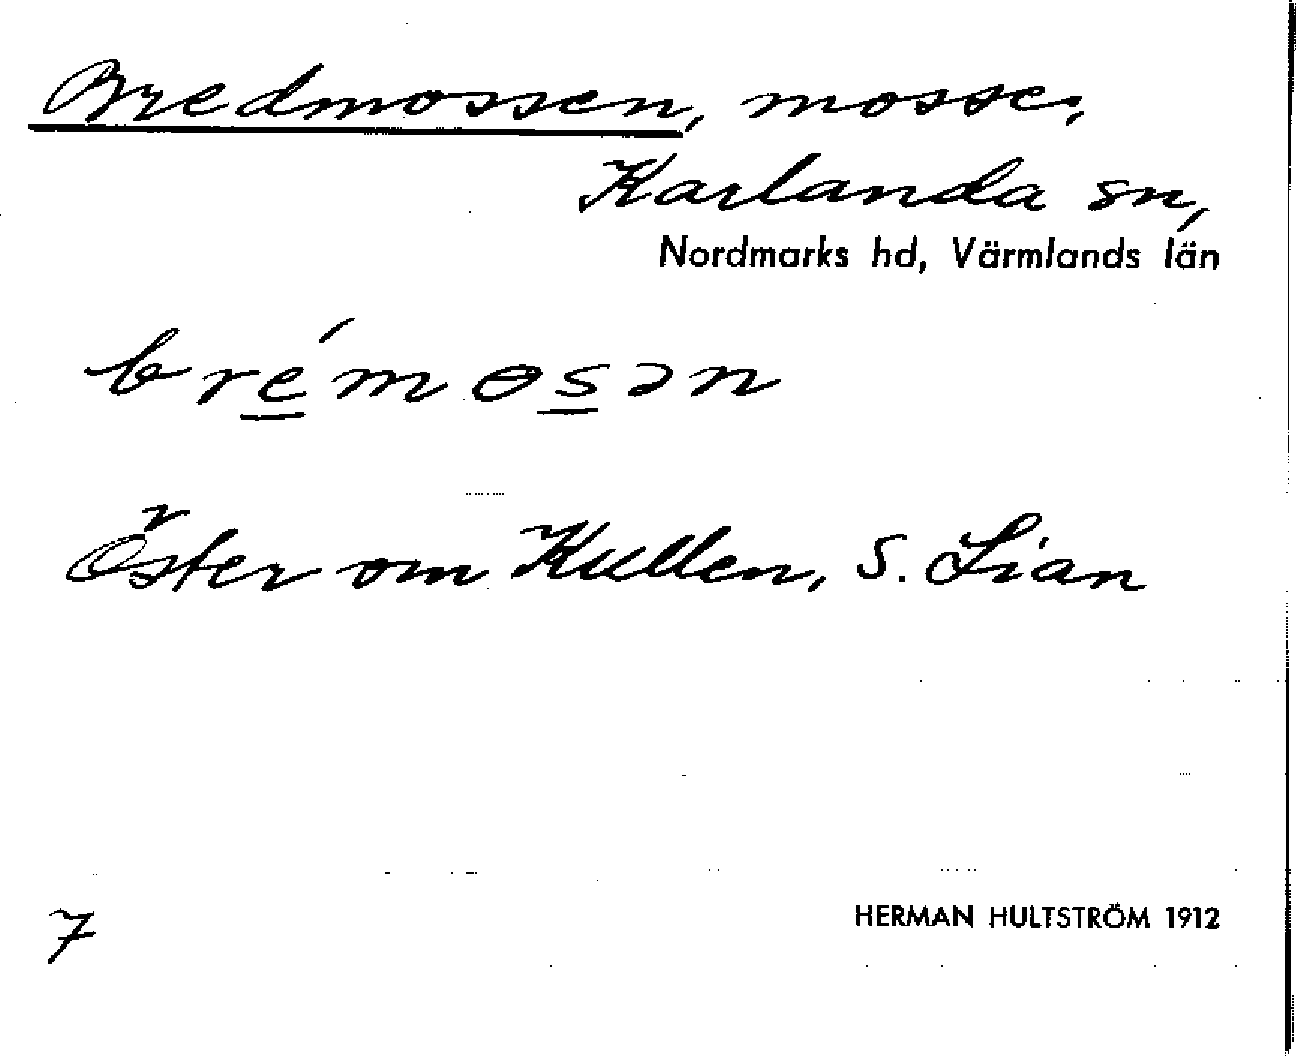 Bredmossen, mosse,
Karlanda sn,
Nordmarks hd, Värmlands län
brémɵsən
Öster om Kullen, S. Lian
7
HERMAN HULTSTRÖM 1912